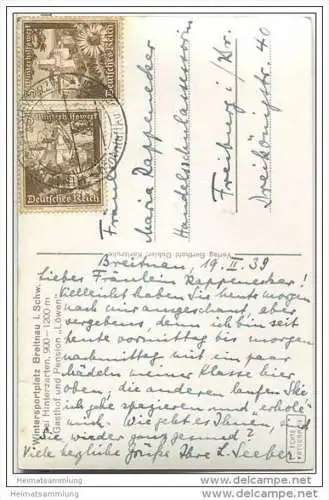 Deutsches Reich
Deutsches Reich
Fräulein
Maria Rappenecker
Handelsschulassessorin
Freiburg i/Br.
Dreikönigstr. 40
Wintersportplatz Breitnau i. Schw.
bei Hinterzarten, 900-1200 m
Gasthof und Pension „Löwen"
Breitnau, 19. II. 39
Liebes Fräulein Rappenecker!
Vielleicht haben Sie heute morgen
nach mir ausgeschaut, aber
vergebens, denn ich bin seit
heute vormittag bis morgen
nachmittag mit ein paar
Mädeln meiner Klasse hier
oben, die anderen laufen Ski
ich gehe spazieren und "erhole"
mich. Wie geht es Ihnen, sind
Sie wieder ganz gesund?
Viele herzliche Grüße Ihre L. Seeber.
Heimatsammlung.net
Heimatsammlung.net
Heimatsammlung.net